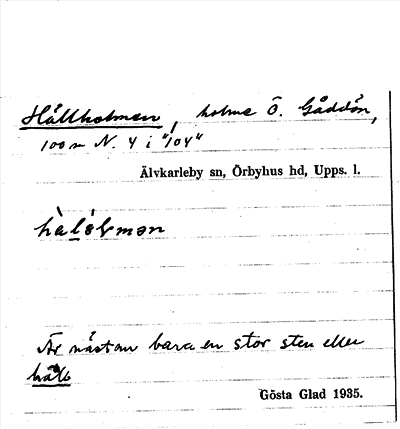 Hällholmen, holme Ö. Gåddön,
100 m N. 4 i "104"
Älvkarleby sn, Örbyhus hd, Upps. l.
Är nästan bara en stor sten eller
häll
Gösta Glad 1935.